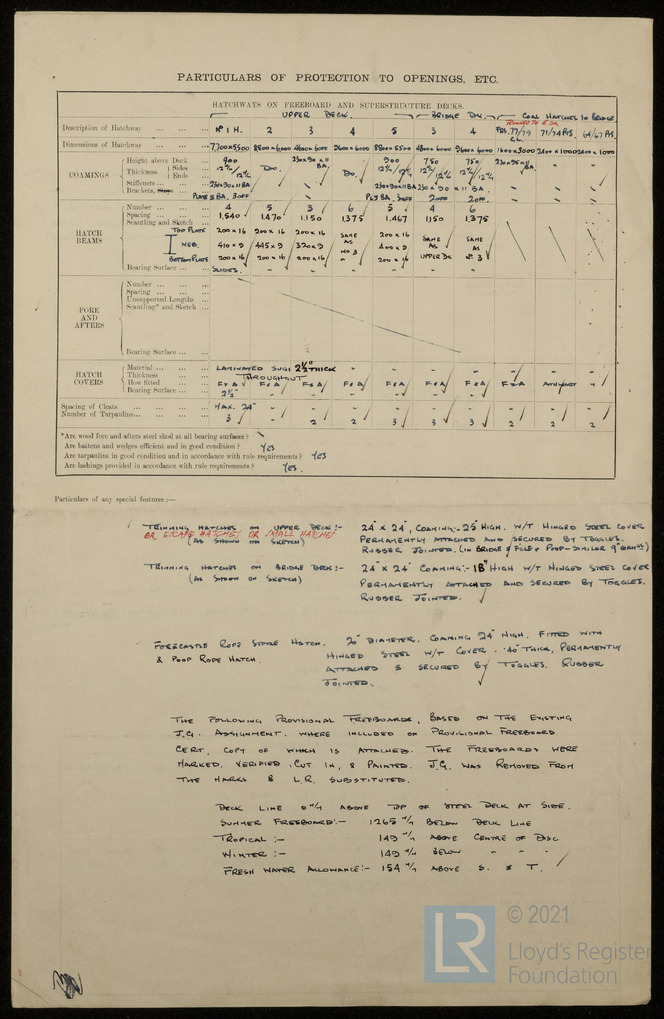 PARTICULARS OF PROTECTION TO OPENINGS, ETC.
HATCHWAYS ON FREEBOARD AND SUPERSTRUCTURE DECKS.
UPPER DECK. BRIDGE DK. COAL HATCHES IN BRIDGE
Description of Hatchway ... ... ... Nº 1 H. 2 3 4 5 3 4 FDS. 77/79 71/74 FDS. 64/67 FDS.
Dimensions of Hatchway ... ... ... 7700x5500 8800x6000 4800x6000 9600x6000 8800x5500 4800x6000 9600x6000 1600x3000 2400x1000 2400x1000
COAMINGS
Height above Deck ... 900 230x90x11 BA. 900 750 750 230x90x11 BA.
Thickness Sides ... Ends ... 12 m/m 12 m/m Do. Do. 12 m/m 12 m/m 12 m/m 12 m/m 12 m/m
Stiffeners ... ... 230x90x11 BA 230x90x11 BA 230x90x11 BA.
Brackets, ... ... PLATE & BA. 3 OFF PL & BA. 3 OFF 2 OFF 2 OFF.
HATCH BEAMS
Number ... ... 4 5 3 6 5 4 6
Spacing ... ... 1,540 1.470 1.150 1.375 1.467 1,150 1.375
Scantling and Sketch ...
TOP PLATE 200 x 16 200 x 16 200 x 16 SAME AS Nº 3 200 x 16 SAME AS UPPER DK SAME AS Nº 3
WEB. 410 x 9 445 x 9 320 x 9 400 x 9
BOTTOM PLATE 200 x 16 200 x 16 200 x 16 200 x 16
Bearing Surface ... ... SLIDES. " " " " " "
FORE AND AFTERS
Number ... ...
Spacing ... ...
Unsupported Lengths ...
Scantling* and Sketch ...
Bearing Surface ... ...
HATCH COVERS
Material ... ... LAMINATED SUGI 2½" THICK
Thickness ... ... THROUGHOUT
How fitted ... ... F & A F & A F & A F & A F & A F & A F & A F & A ATHWART "
Bearing Surface ... 2½"
Spacing of Cleats ... ... ... MAX. 24"
Number of Tarpaulins ... ... ... 3 " 2 2 3 3 3 2 2 2
*Are wood fore and afters steel shod at all bearing surfaces?
Are battens and wedges efficient and in good condition? YES
Are tarpaulins in good condition and in accordance with rule requirements? YES
Are lashings provided in accordance with rule requirements? YES.
Particulars of any special features :—
TRIMMING HATCHES ON UPPER DECK:- 24" x 24", COAMING:- 25" HIGH. W/T HINGED STEEL COVER
OR ESCAPE HATCHES OR SMALL HATCHES PERMANENTLY ATTACHED AND SECURED BY TOGGLES.
(AS SHOWN ON SKETCH) RUBBER JOINTED. (IN BRIDGE & FCLE & POOP - SIMILAR 9" COAMGS)
TRIMMING HATCHES ON BRIDGE DECK:- 24" x 24" COAMING:- 18" HIGH W/T HINGED STEEL COVER
(AS SHOWN ON SKETCH) PERMANENTLY ATTACHED AND SECURED BY TOGGLES.
RUBBER JOINTED.
FORECASTLE ROPE STORE HATCH. 20" DIAMETER. COAMING 24" HIGH. FITTED WITH
& POOP ROPE HATCH. HINGED STEEL W/T COVER. .40" THICK, PERMANENTLY
ATTACHED & SECURED BY TOGGLES. RUBBER
JOINTED.
THE FOLLOWING PROVISIONAL FREEBOARDS, BASED ON THE EXISTING
J.G. ASSIGNMENT, WHERE INCLUDED ON PROVISIONAL FREEBOARD
CERT, COPY OF WHICH IS ATTACHED. THE FREEBOARDS WERE
MARKED, VERIFIED, CUT IN, & PAINTED. J.G. WAS REMOVED FROM
THE MARKS & L.R. SUBSTITUTED.
DECK LINE 0 m/m ABOVE TOP OF STEEL DECK AT SIDE.
SUMMER FREEBOARD:- 1265 m/m BELOW DECK LINE
TROPICAL:- 149 m/m ABOVE CENTRE OF DISC
WINTER:- 149 m/m BELOW " " "
FRESH WATER ALLOWANCE:- 154 m/m ABOVE S. & T.
LR
© 2021
Lloyd's Register
Foundation